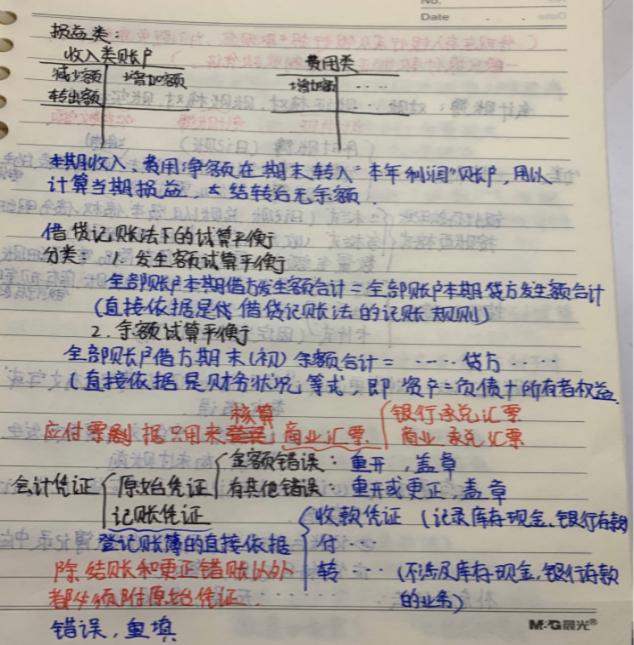 No.
Date
损益类:
收入类账户 费用类
减少额 增加额 增加额 ....
转出额
本期收入、费用净额在期末转入"本年利润"账户,用以
计算当期损益,结转后无余额.
借贷记账法下的试算平衡
分类: 1. 发生额试算平衡
全部账户本期借方发生额合计=全部账户本期贷方发生额合计
(直接依据是借贷记账法的记账规则)
2. 余额试算平衡
全部账户借方期末(初)余额合计= ···· 贷方 ····
(直接依据是财务状况等式,即资产=负债+所有者权益
核算 银行承兑汇票
应付票据只用来 商业汇票 商业承兑汇票
金额错误: 重开,盖章
会计凭证 原始凭证 有其他错误: 重开或更正,盖章
记账凭证 收款凭证 (记录库存现金、银行存款
登记账簿的直接依据 付 ···
除结账和更正错账以外 转 ··· (不涉及库存现金、银行存款
都必须附原始凭证. 的业务)
错误,重填
M&G晨光®